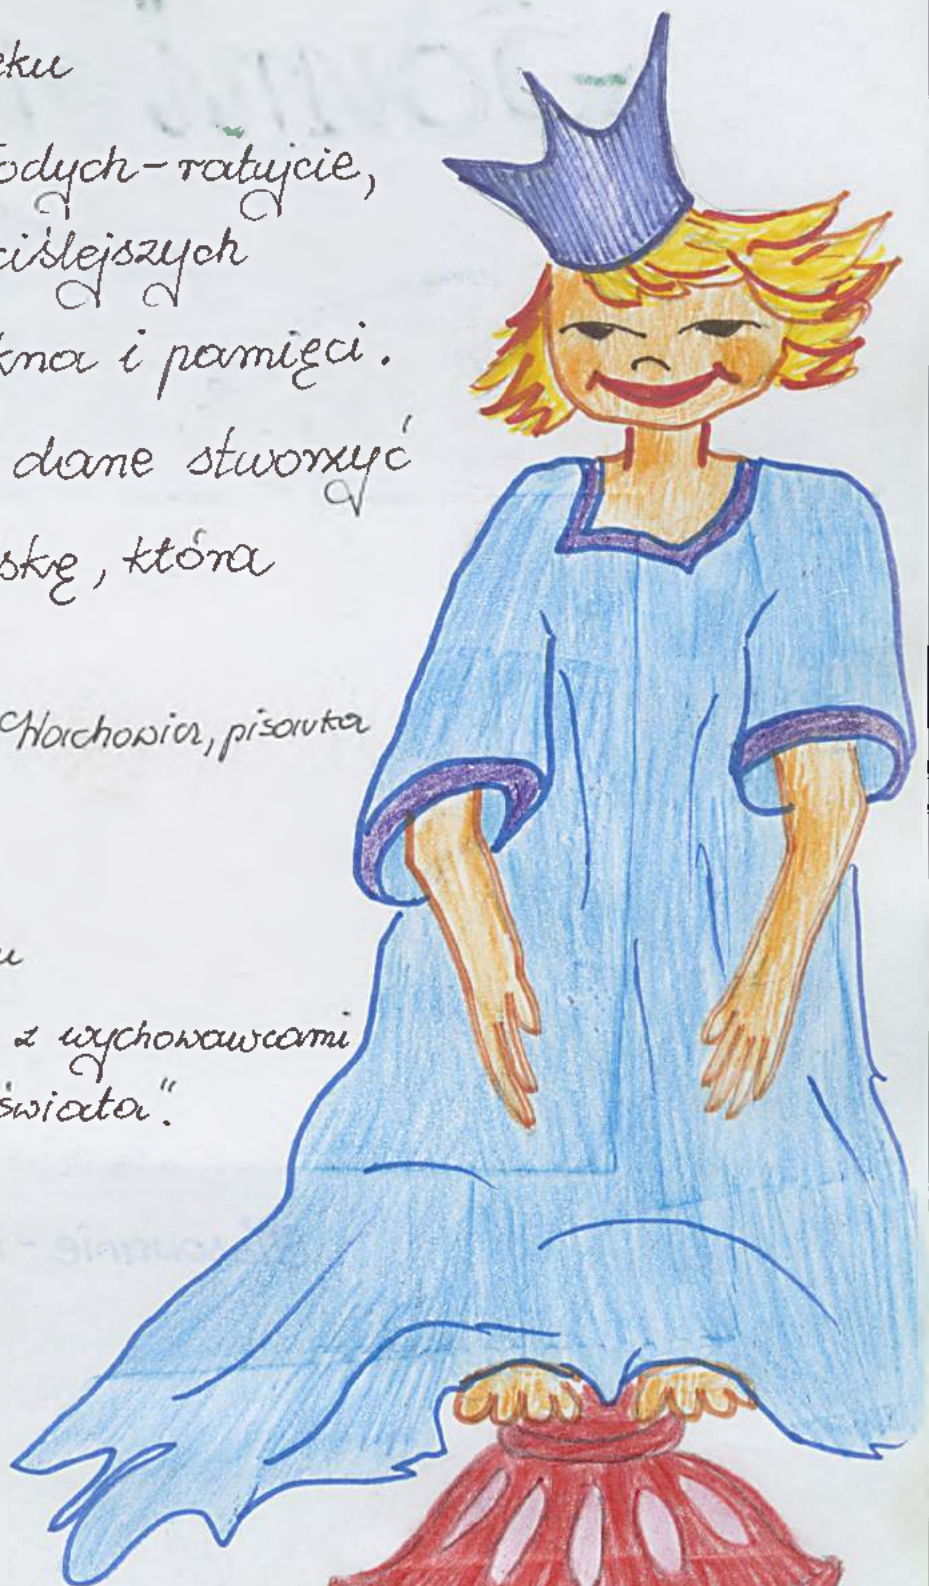 eku
odych-ratujcie,
ciślejszych
kna i pamięci.
dane stworzyć
skę, która
Wachowicz, pisarka
u
z wychowawcami
świata".